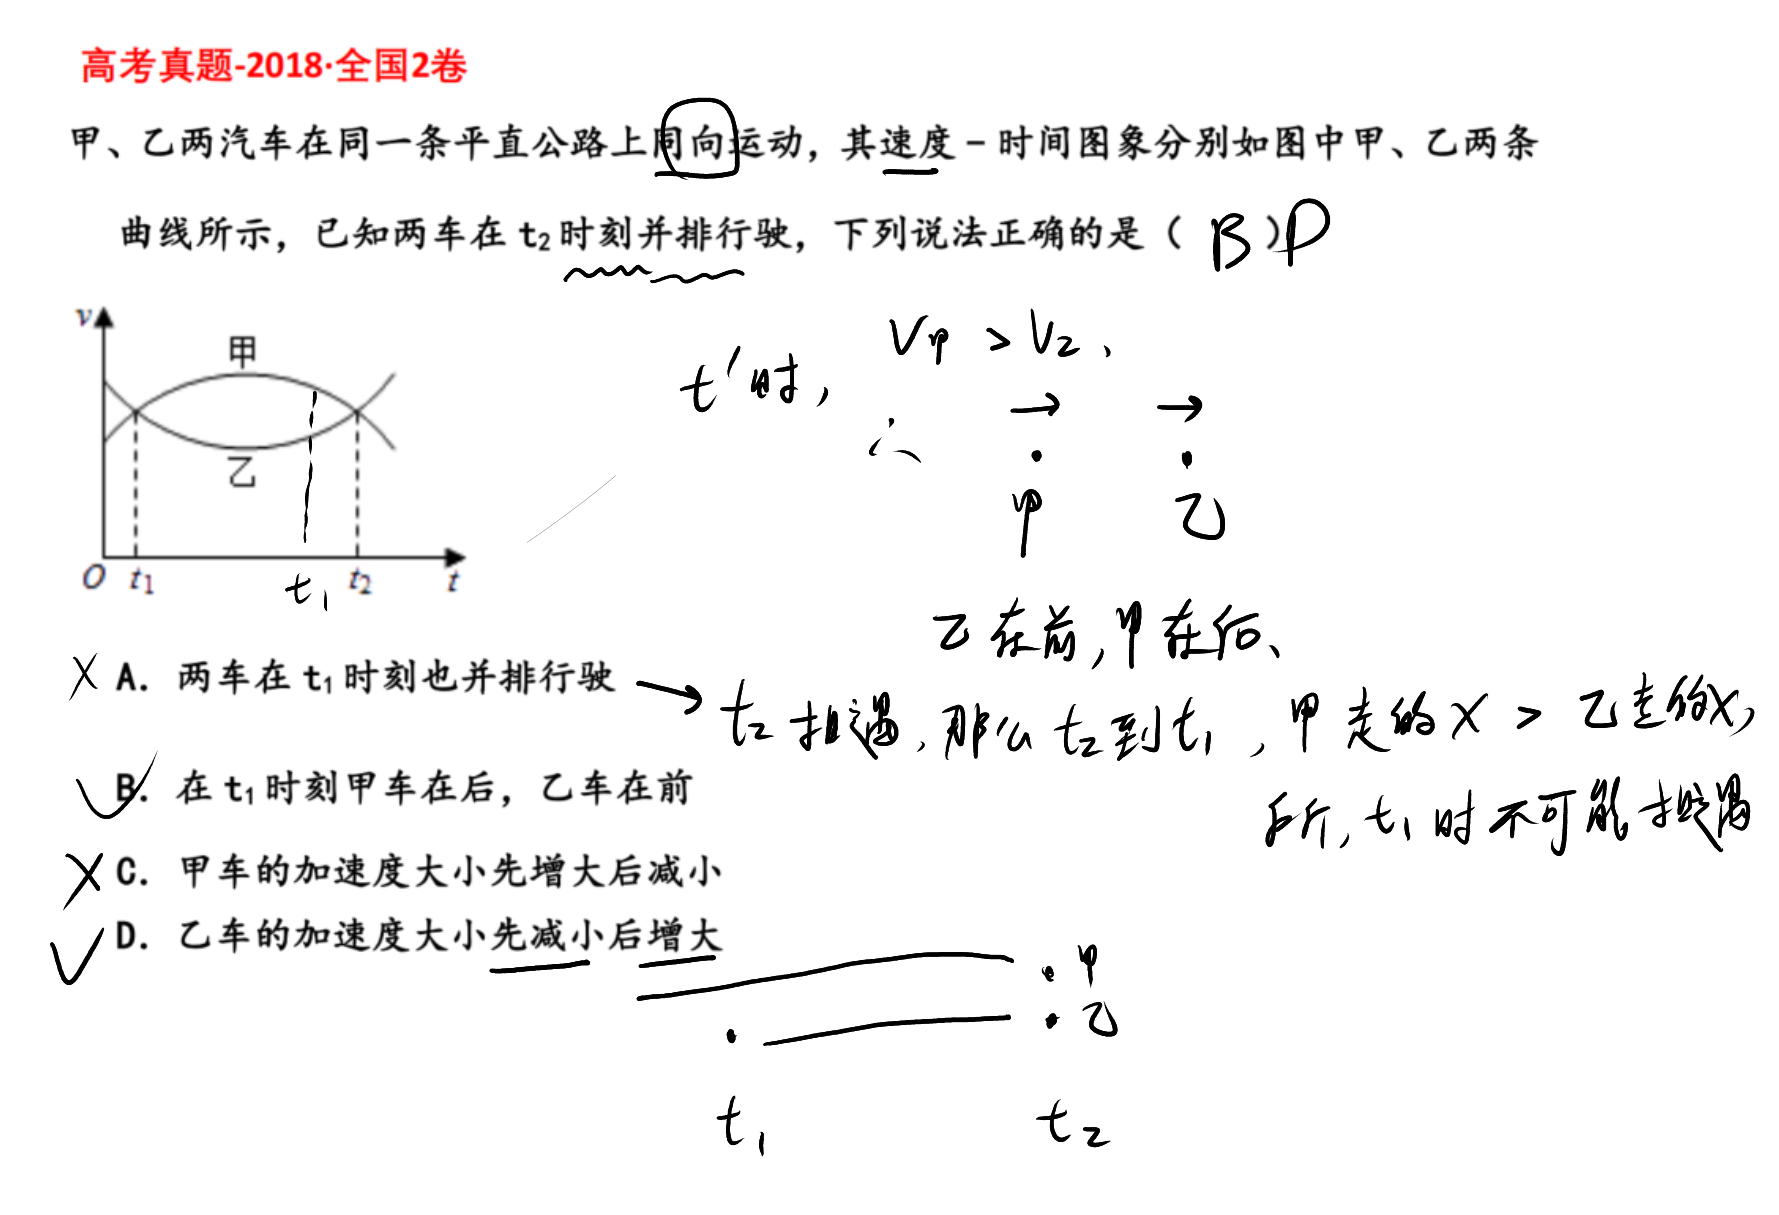 高考真题-2018·全国2卷
甲、乙两汽车在同一条平直公路上同向运动，其速度－时间图象分别如图中甲、乙两条
曲线所示，已知两车在 t₂ 时刻并排行驶，下列说法正确的是（ B ）D
v
甲
乙
O t₁ t₁ t₂ t
t′时，
V甲 > V乙、
∴ → →
甲 乙
乙在前，甲在后、
× A. 两车在 t₁ 时刻也并排行驶 →
t₂ 相遇，那么 t₂ 到 t₁，甲走的 X > 乙走的X，
所，t₁ 时不可能相遇
✓ B. 在 t₁ 时刻甲车在后，乙车在前
× C. 甲车的加速度大小先增大后减小
✓ D. 乙车的加速度大小先减小后增大
甲
乙
t₁ t₂